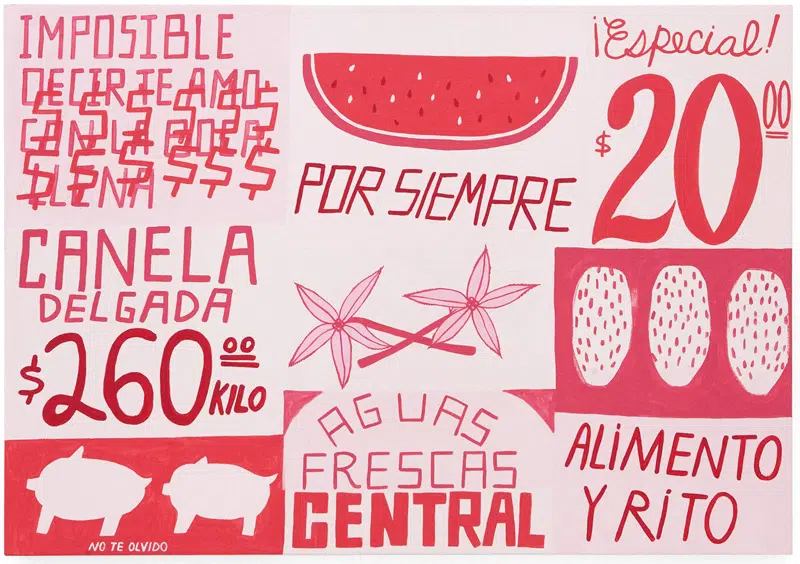 IMPOSIBLE
DECIRTE AMO
CON LA BOCA
LLENA
$ $ $ $ $ $
$ $ $ $ $ $
POR SIEMPRE
¡Especial!
$2000
CANELA
DELGADA
$26000 KILO
NO TE OLVIDO
AGUAS
FRESCAS
CENTRAL
ALiMENTO
Y RiTO